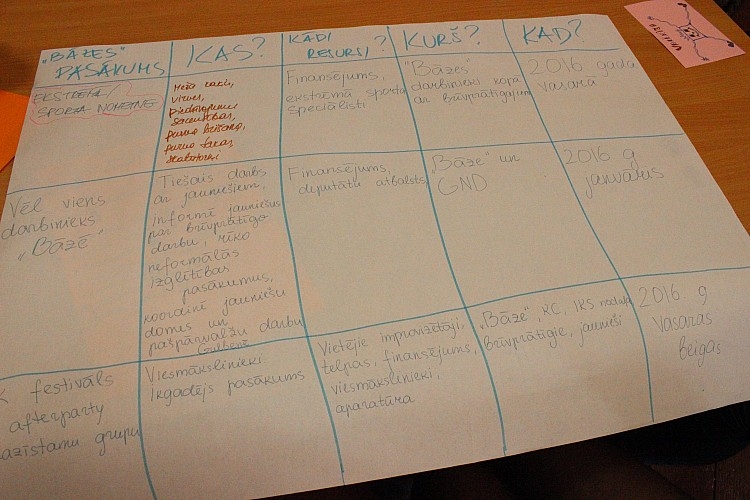 „BĀZES" PASĀKUMS
KAS?
KĀDI RESURSI?
KURŠ?
KAD?
EKSTRĒMĀ
SPORTA NOMETNE
Meža kaķi,
virves,
piedzīvojumu
sacensības,
purvu
purva takas
Finansējums,
ekstrēmā sporta
speciālisti
"Bāzes"
darbinieki kopā
ar brīvprātīgajiem
2016 gada
vasara
Vēl viens
darbinieks
„Bāzē"
Tiešais darbs
ar jauniešiem,
informē jauniešus
par brīvprātīgo
darbu, rīko
neformālās
izglītības
pasākumus,
koordinē jauniešu
domes un
pašpārvalžu darbu
Gulbenē
Finansējums,
deputātu atbalsts
„Bāze" un
GND
2016 g
janvāris
festivāls
afterparty
grupu
Viesmākslinieki
Ikgadējs pasākums
Vietējie improvizētāji,
telpas, finansējums,
viesmākslinieki,
aparatūra
„Bāze", KC, JKS nodaļa
Brīvprātīgie, jaunieši
2016 g
vasaras
beigas